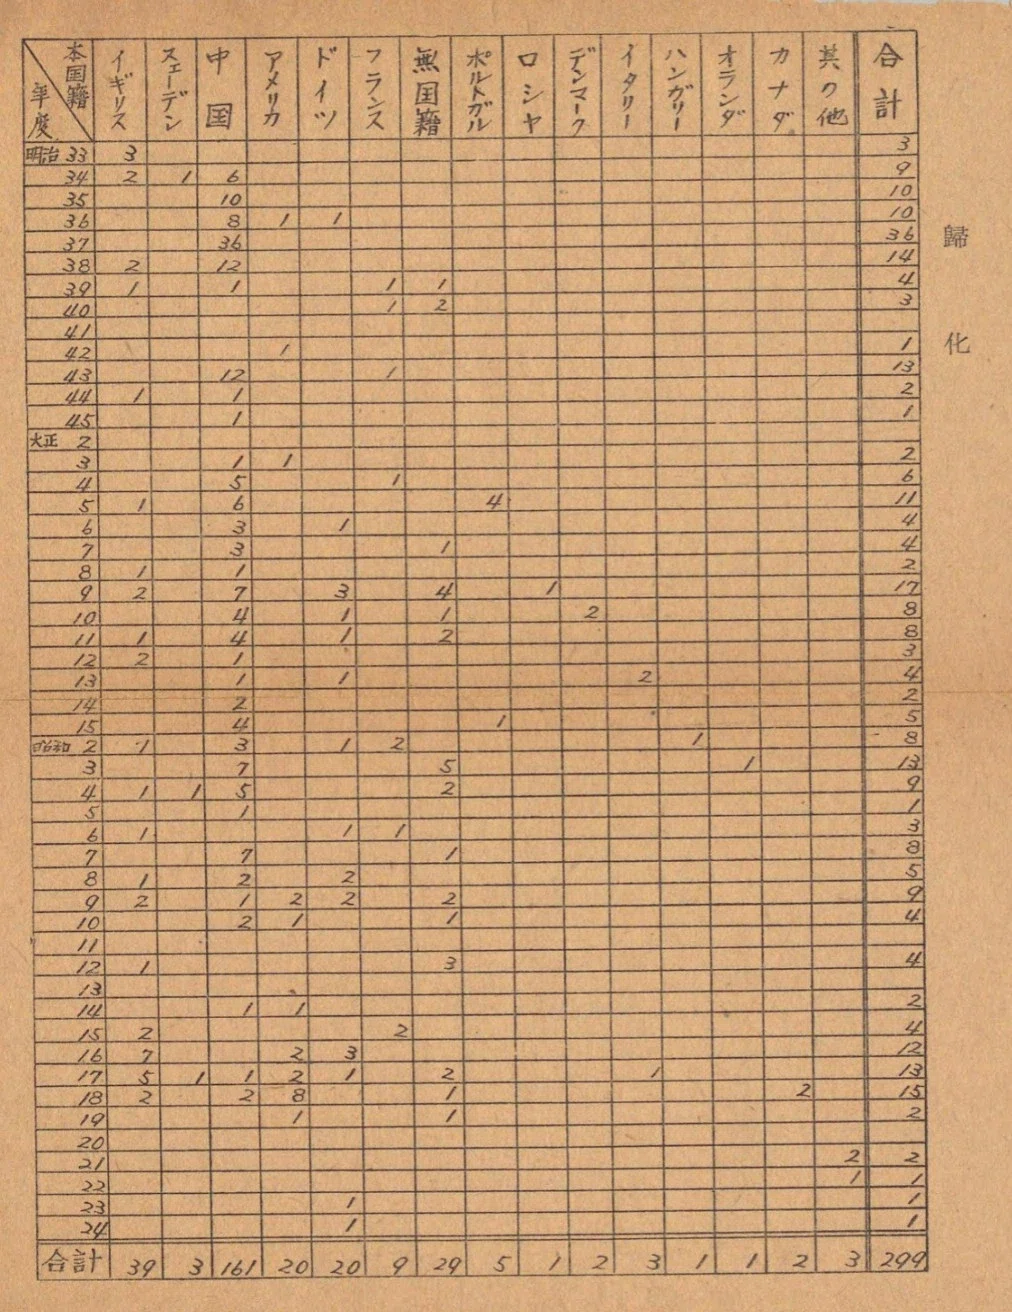 歸化
本国籍 年度 イギリス スェーデン 中国 アメリカ ドイツ フランス 無国籍 ポルトガル ロシヤ デンマーク イタリー ハンガリー オランダ カナダ 其の他 合計
明治 33 3 3
34 2 1 6 9
35 10 10
36 8 1 1 10
37 36 36
38 2 12 14
39 1 1 1 1 4
40 1 2 3
41
42 1 1
43 12 1 13
44 1 1 2
45 1 1
大正 2
3 1 1 2
4 5 1 6
5 1 6 4 11
6 3 1 4
7 3 1 4
8 1 1 2
9 2 7 3 4 1 17
10 4 1 1 2 8
11 1 4 1 2 8
12 2 1 3
13 1 1 2 4
14 2 2
15 4 1 5
昭和 2 1 3 1 2 1 8
3 7 5 1 13
4 1 1 5 2 9
5 1 1
6 1 1 1 3
7 7 1 8
8 1 2 2 5
9 2 1 2 2 2 9
10 2 1 1 4
11
12 1 3 4
13
14 1 1 2
15 2 2 4
16 7 2 3 12
17 5 1 1 2 1 2 1 13
18 2 2 8 1 2 15
19 1 1 2
20
21 2 2
22 1 1
23 1 1
24 1 1
合計 39 3 161 20 20 9 29 5 1 2 3 1 1 2 3 299